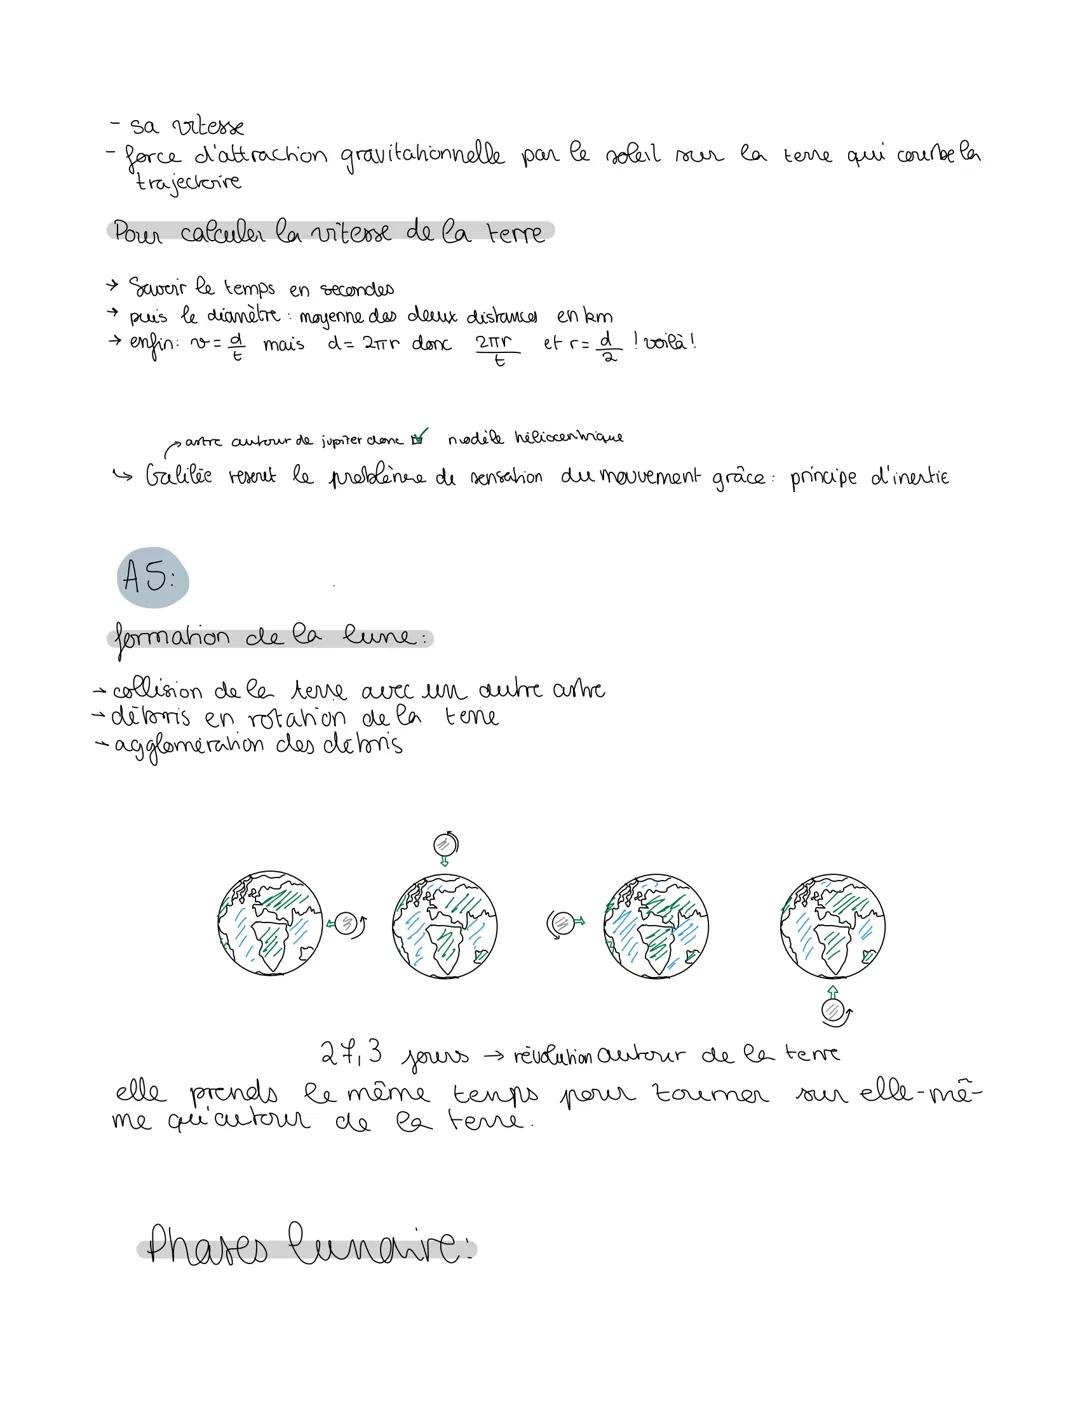 - sa vitesse
- force d'attraction gravitationnelle par le soleil sur la terre qui courbe la
trajectoire
Pour calculer la vitesse de la terre
→ Savoir le temps en secondes
→ puis le diamètre : moyenne des deux distances en km
→ enfin: v = d/t mais d = 2πr donc 2πr/t et r = d/2 ! voilà !
astre autour de jupiter donc modèle héliocentrique
↳ Galilée resout le problème de sensation du mouvement grâce : principe d'inertie
A5:
formation de la lune:
→ collision de la terre avec un autre astre
→ débris en rotation de la terre
→ agglomération des débris
27,3 jours → révolution autour de la terre
elle prends le même temps pour tourner sur elle-mê-
me qu'autour de la terre.
Phases lunaire: